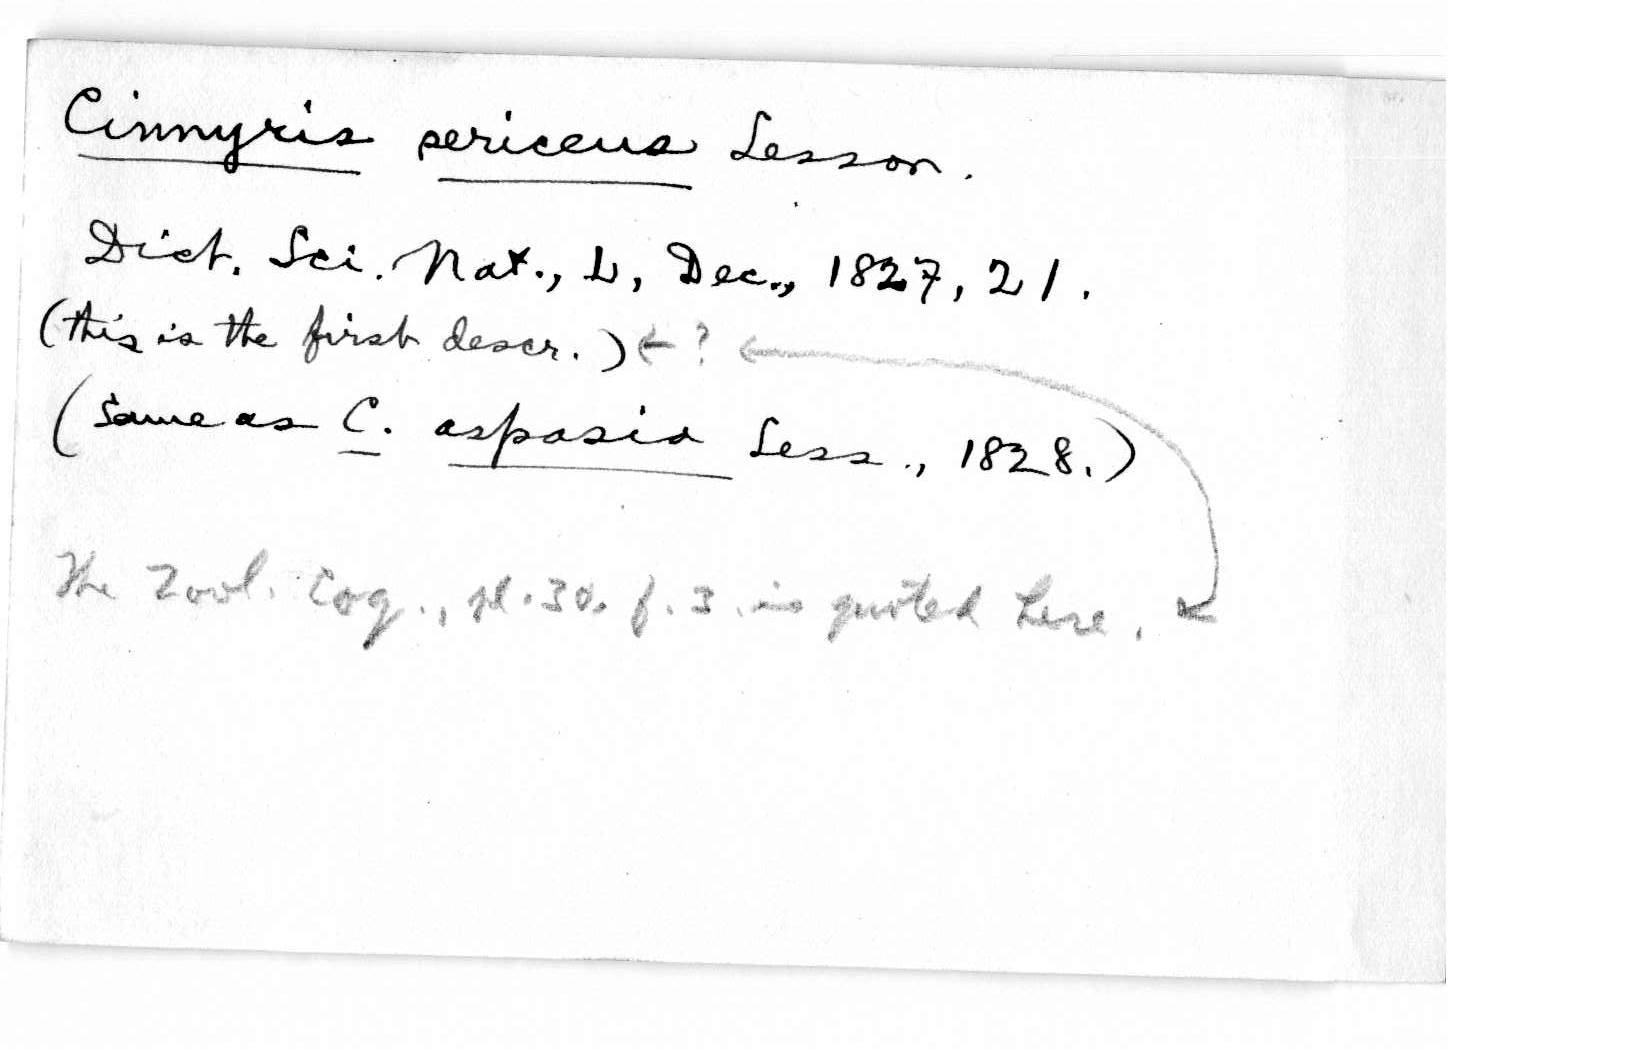 Cinnyris sericeus Lesson.
Dict. Sci. Nat., L, Dec., 1827, 21.
(this is the first descr.) ← ?
(Same as C. aspasia Less., 1828.)
The Zool. Coq., pl. 30. f. 3. is quoted here.